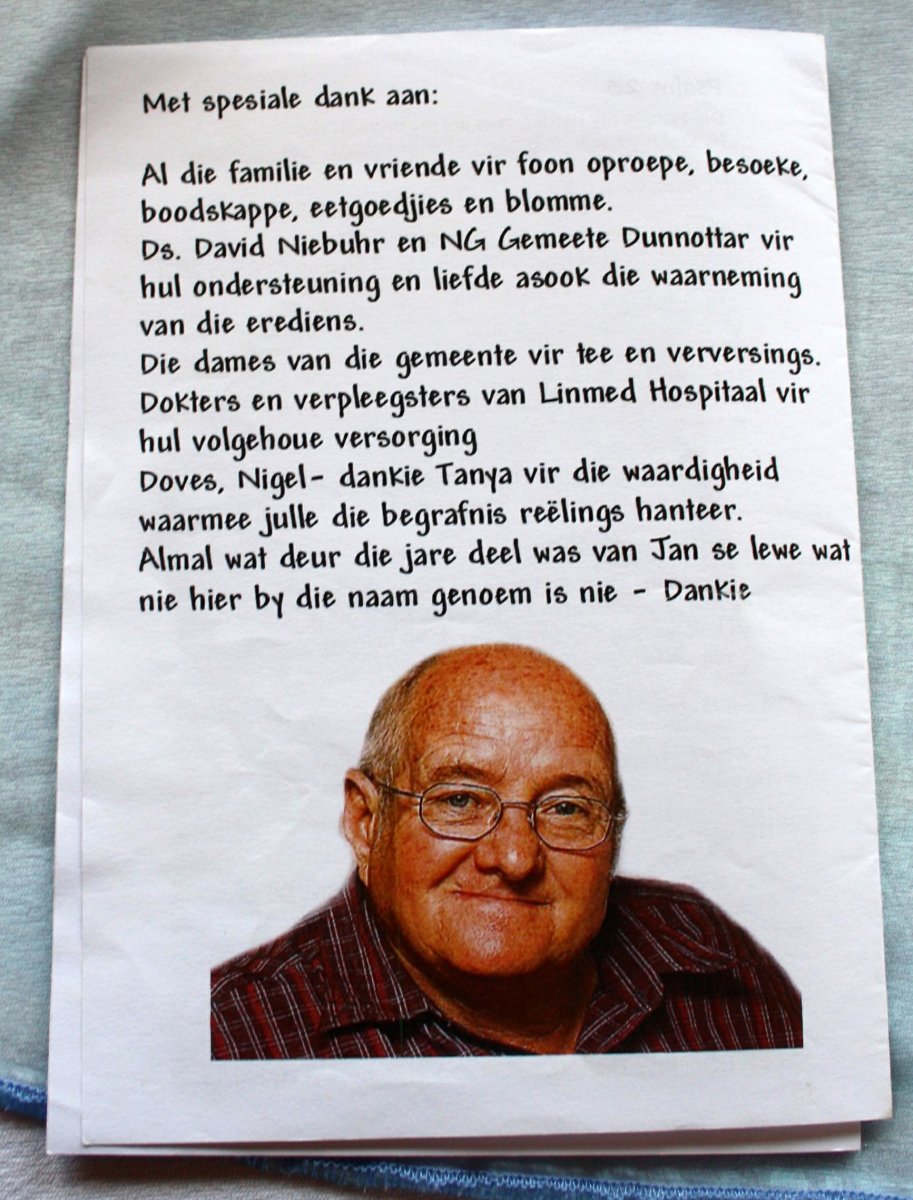 Met spesiale dank aan:
Al die familie en vriende vir foon oproepe, besoeke,
boodskappe, eetgoedjies en blomme.
Ds. David Niebuhr en NG Gemeete Dunnottar vir
hul ondersteuning en liefde asook die waarneming
van die erediens.
Die dames van die gemeente vir tee en verversings.
Dokters en verpleegsters van Linmed Hospitaal vir
hul volgehoue versorging
Doves, Nigel- dankie Tanya vir die waardigheid
waarmee julle die begrafnis reëlings hanteer.
Almal wat deur die jare deel was van Jan se lewe wat
nie hier by die naam genoem is nie - Dankie